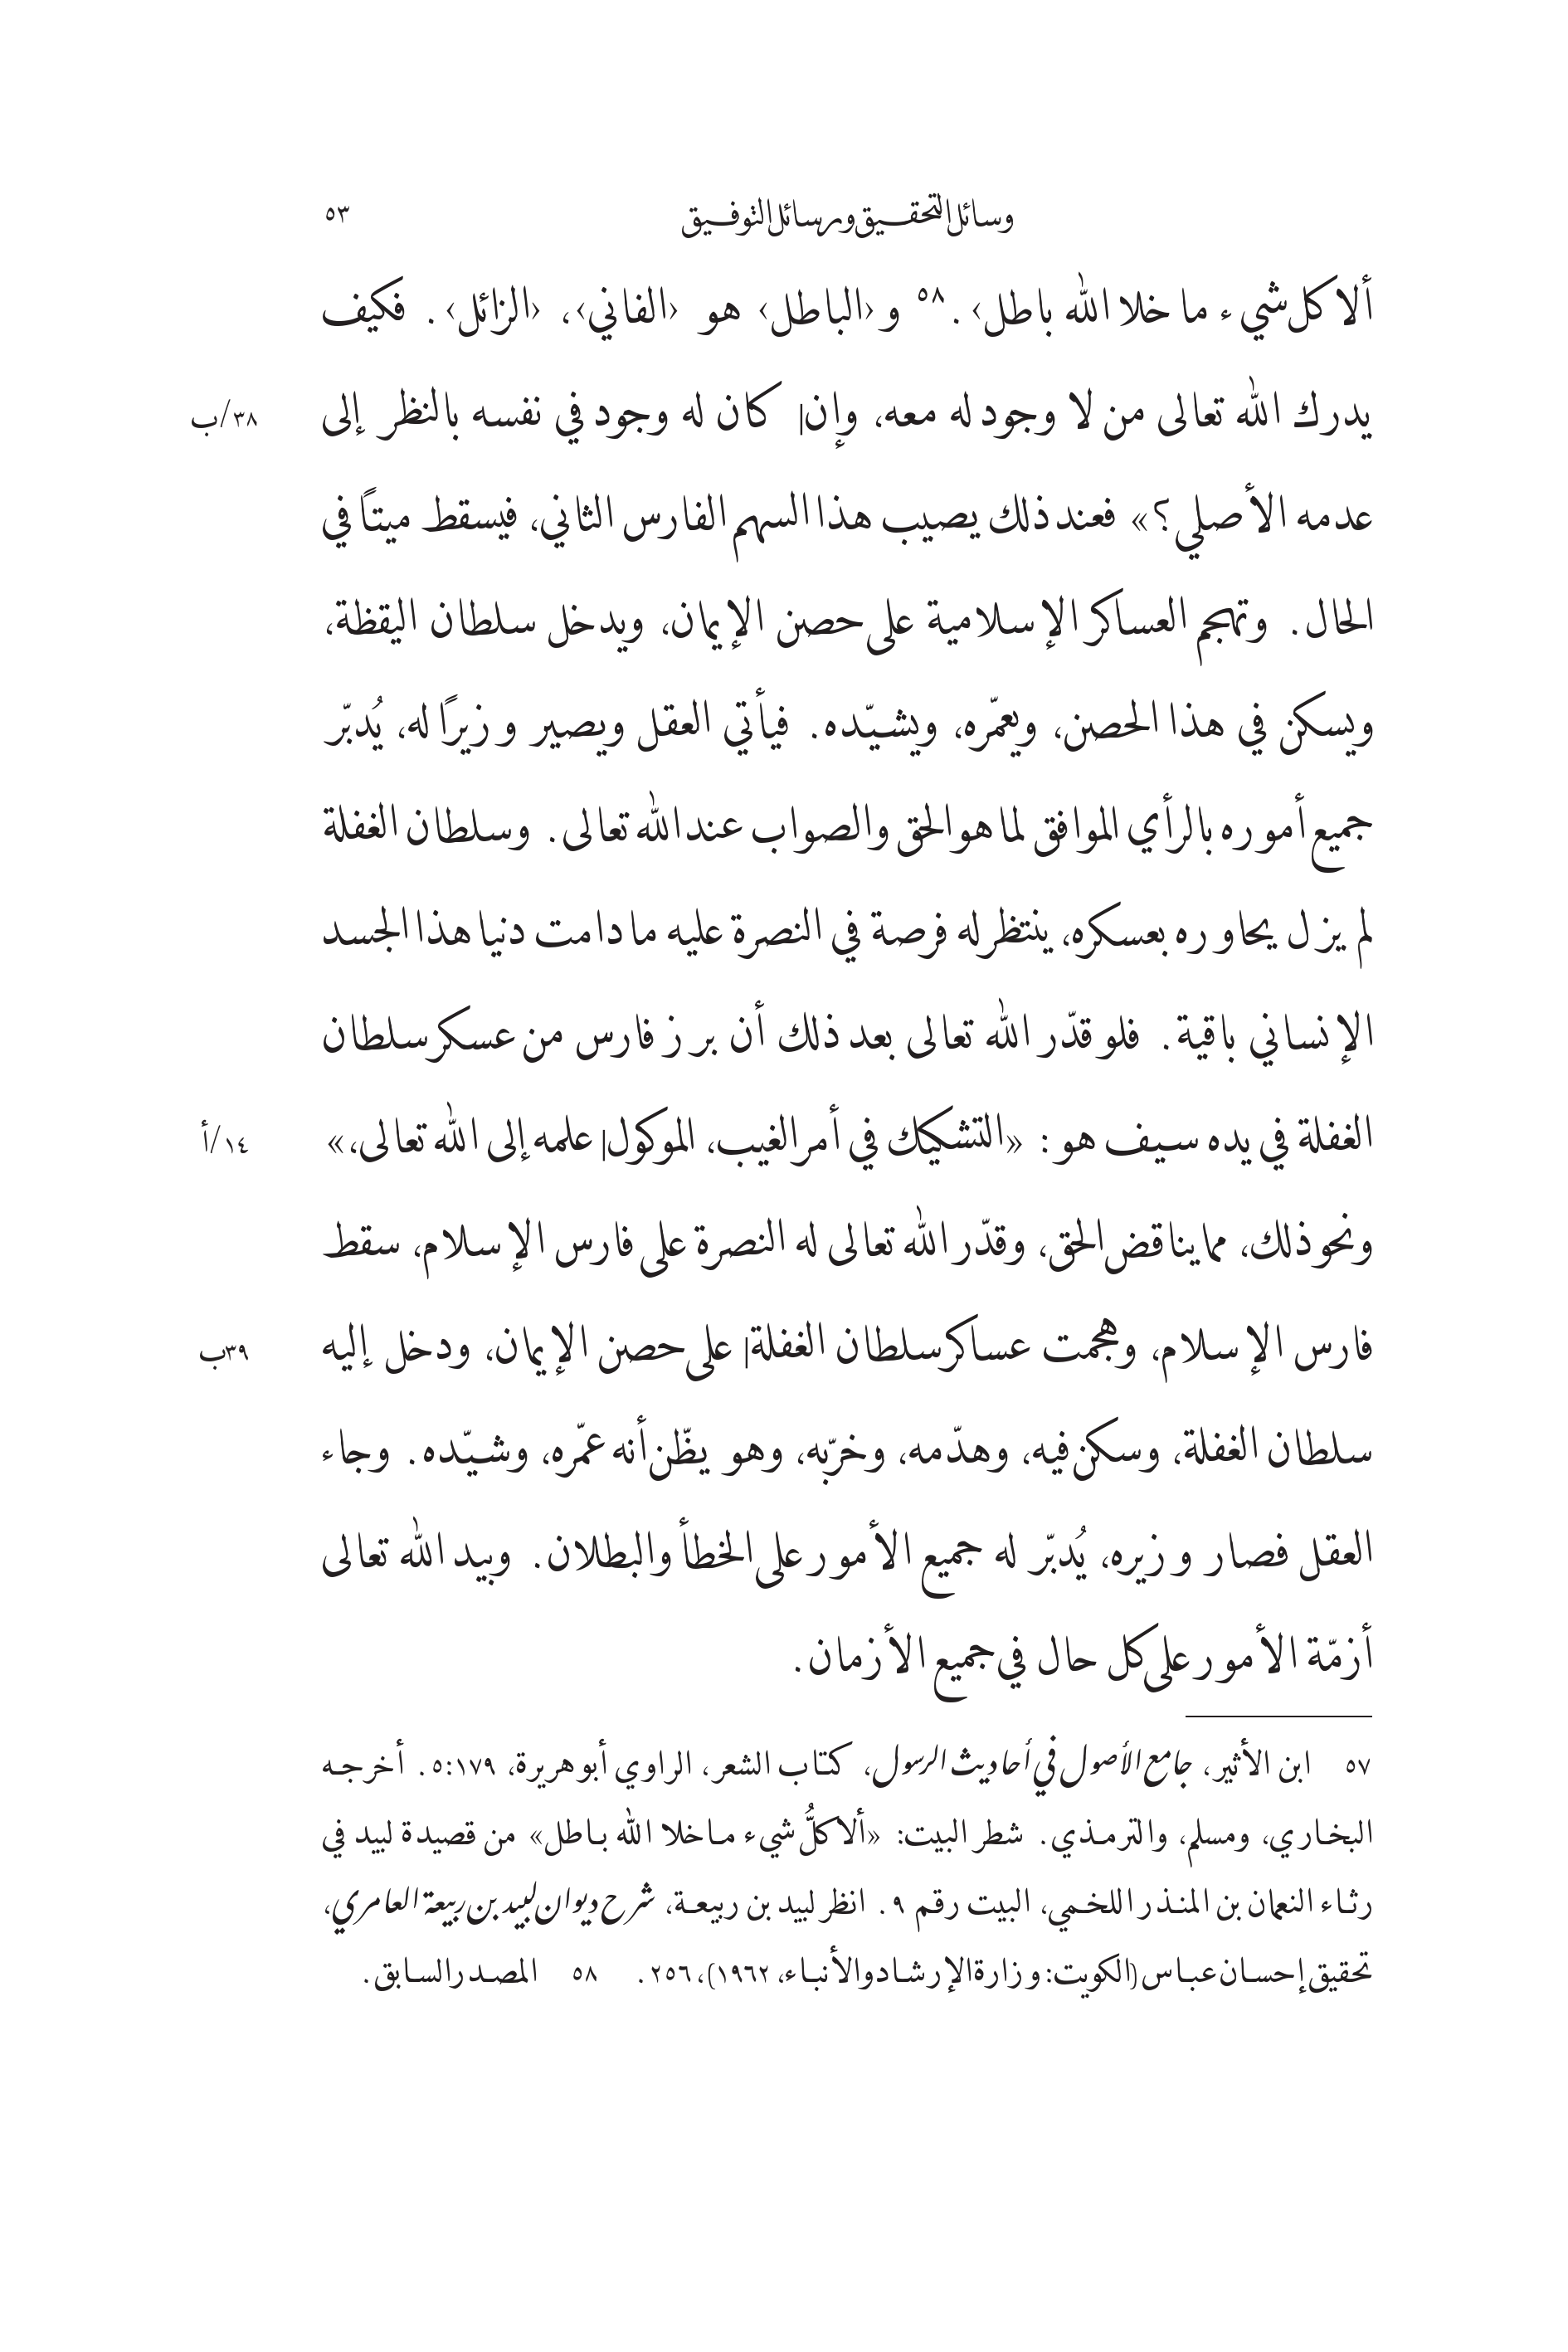 وسائل التحقيق ورسائل التوفيق ٥٣
ألا كل شيء ما خلا الله باطل› .٥٨ و ‹الباطل› هو ‹الفاني›، ‹الزائل› . فكيف
يدرك الله تعالى من لا وجود له معه، وإن| كان له وجود في نفسه بالنظر إلى ٣٨/ب
عدمه الأصلي؟» فعند ذلك يصيب هذا السهم الفارس الثاني، فيسقط ميتًا في
الحال. وتهجم العساكر الإسلامية على حصن الإيمان، ويدخل سلطان اليقظة،
ويسكن في هذا الحصن، ويعمّره، ويشيّده. فيأتي العقل ويصير وزيرًا له، يُدبّر
جميع أموره بالرأي الموافق لما هو الحق والصواب عند الله تعالى. وسلطان الغفلة
لم يزل يحاوره بعسكره، ينتظر له فرصة في النصرة عليه ما دامت دنيا هذا الجسد
الإنساني باقية. فلو قدّر الله تعالى بعد ذلك أن برز فارس من عسكر سلطان
الغفلة في يده سيف هو: «التشكيك في أمر الغيب، الموكول| علمه إلى الله تعالى،» ١٤/أ
ونحو ذلك، مما يناقض الحق، وقدّر الله تعالى له النصرة على فارس الإسلام، سقط
فارس الإسلام، وهجمت عساكر سلطان الغفلة| على حصن الإيمان، ودخل إليه ٣٩ب
سلطان الغفلة، وسكن فيه، وهدّمه، وخرّبه، وهو يظّن أنه عمّره، وشيّده. وجاء
العقل فصار وزيره، يُدبّر له جميع الأمور على الخطأ والبطلان. وبيد الله تعالى
أزمّة الأمور على كل حال في جميع الأزمان.
٥٧ ابن الأثير، جامع الأصول في أحاديث الرسول، كتاب الشعر، الراوي أبو هريرة، ٥:١٧٩. أخرجه
البخاري، ومسلم، والترمذي. شطر البيت: «ألا كلُّ شيء ما خلا الله باطل» من قصيدة لبيد في
رثاء النعمان بن المنذر اللخمي، البيت رقم ٩. انظر لبيد بن ربيعة، شرح ديوان لبيد بن ربيعة العامري،
تحقيق إحسان عباس (الكويت: وزارة الإرشاد والأنباء، ١٩٦٢)، ٢٥٦. ٥٨ المصدر السابق.